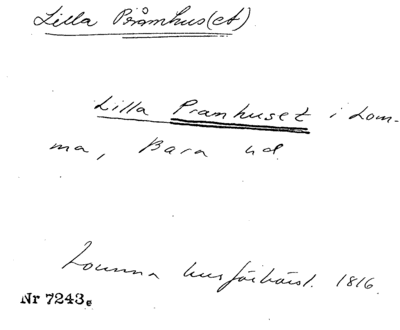 Lilla Pråmhus(et)
Lilla Pramhuset i Lom-
ma, Bara hd.
Lomma husförhörsl. 1816.
Nr 7243e